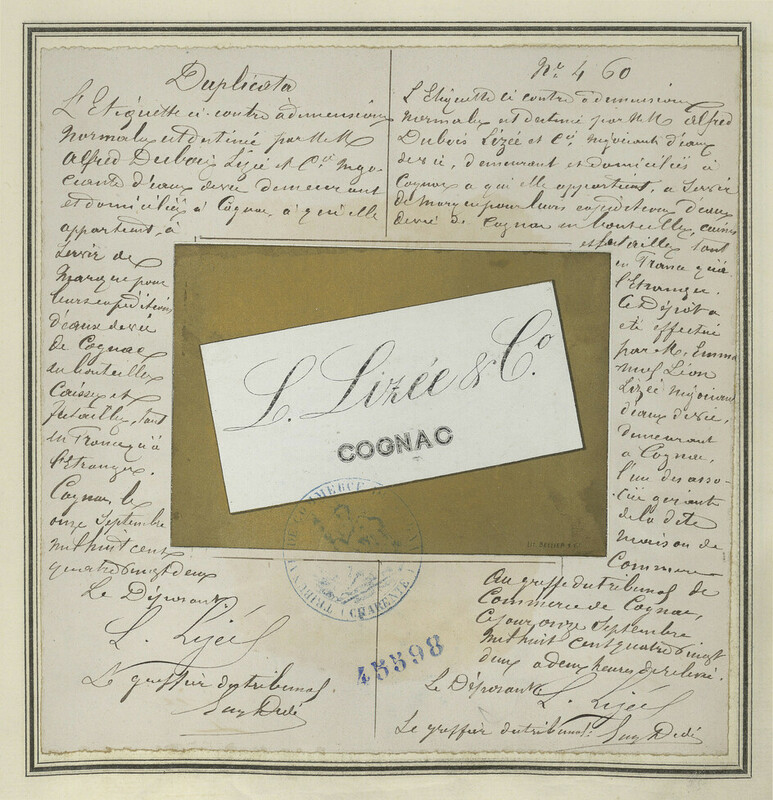 Duplicata
L'Etiquette ci-contre à dimension
normale est destinée par MM
Alfred Dubois Lizée et Cie négo-
ciants d'eaux de vie demeurant
et domiciliés à Cognac à qui elle
appartient, à
servir de
Marque pour
leurs expéditions
d'eaux de vie
de Cognac
en bouteilles
Caisses et
futailles, tant
en France qu'à
l'Etranger.
Cognac, le
onze Septembre
mil huit cent
quatre vingt deux
Le Déposant.
L. Lizée
Le greffier du tribunal.
No 460
L'Etiquette ci contre à dimension
normale est destinée par MM Alfred
Dubois Lizée et Cie, négociants d'eaux
de vie, demeurant et domiciliés à
Cognac à qui elle appartient, à servir
de marque pour leurs expéditions d'eaux
de vie de Cognac en bouteilles, caisses
et futailles tant
en France qu'à
l'Etranger.
Ce Dépôt a
été effectué
par M. Emma
nuel Léon
Lizée négociant
d'eaux de vie,
demeurant
à Cognac,
l'un des asso-
ciés gérants
de la dite
maison de
Commerce
Au greffe du tribunal de
Commerce de Cognac,
Ce jour, onze Septembre
mil huit cent quatre vingt
deux à deux heures de relevé.
Le Déposant
L. Lizée
Le greffier du tribunal:
L. Lizée & Co.
COGNAC
TRIBUNAL DE COMMERCE
CHARENTE
45598